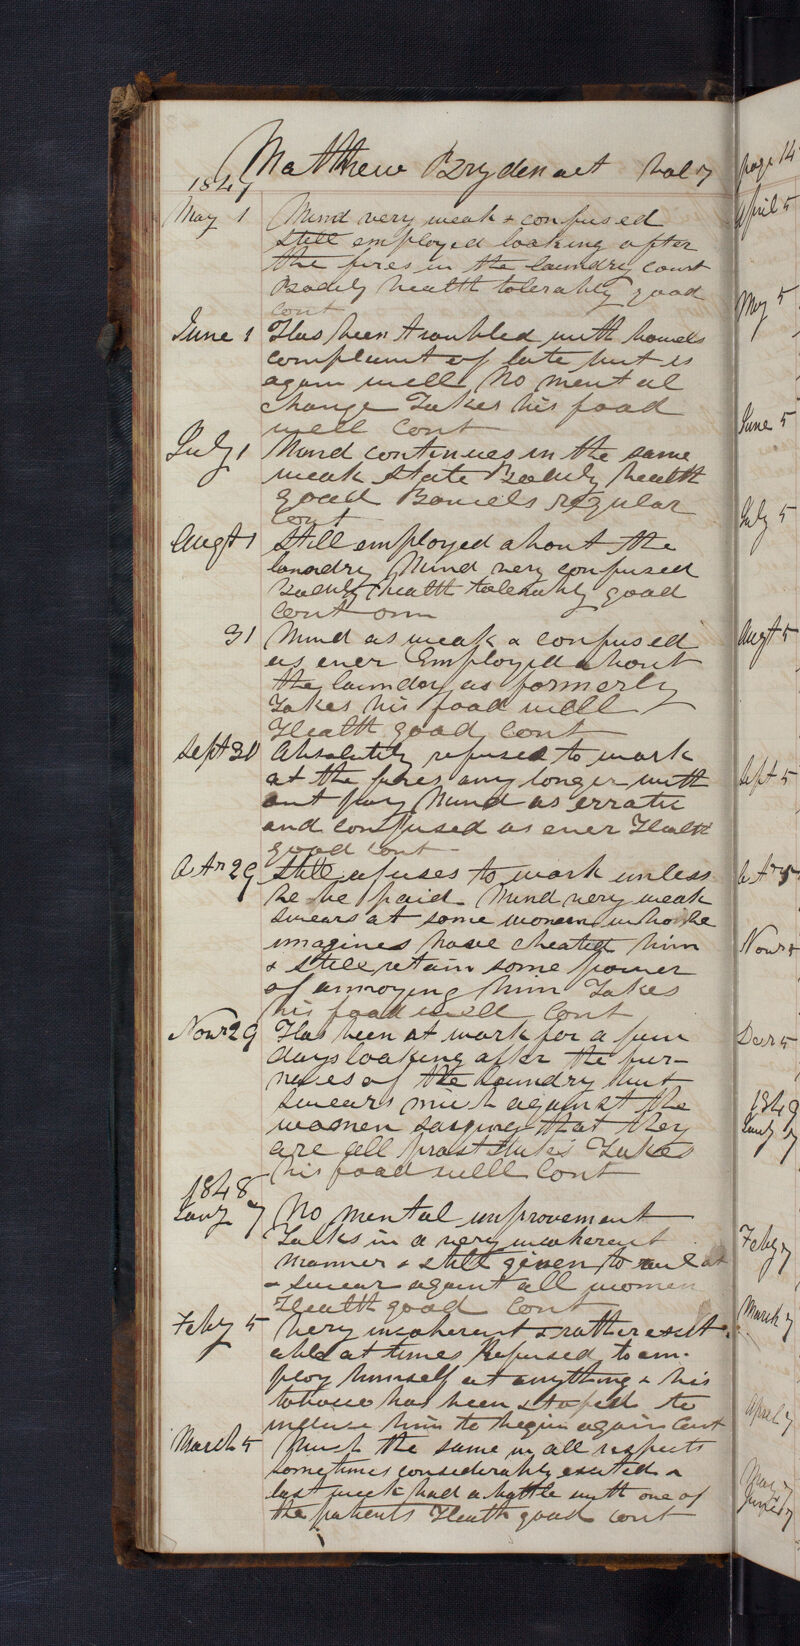 Matthew Bryden aet Vol 7
1847
May 1 Mind very weak & confused
still employed looking after
the fires in the laundry court
Bodily health tolerably good
Cont
June 1 Has been troubled with bowels
complaint of late but is
again well No mental
change Takes his food
well Cont
July 1 Mind continues in the same
weak state Bodily health
good Bowels regular
Cont
Augt 1 Still employed about the
laundry Mind very confused
Bodily health tolerably good
Cont
31 Mind as weak & confused
as ever Employed about
the laundry as formerly
Takes his food well
Health good Cont
Sept 30 Absolutely refuses to work
at the fires any longer with
out pay Mind as erratic
and confused as ever Health
good Cont
Octr 29 Still refuses to work unless
he be paid Mind very weak
Swears at some women who he
imagines have cheated him
& still retain some power
of annoying him Takes
his food well Cont
Novr 29 Has been at work for a few
days looking after the fur-
naces of the laundry but
swears much against the
women saying that they
are all prostitutes Takes
his food well Cont
1848
Jany 7 No mental improvement
Talks in a very incoherent
manner & still given to rail at
& swear against all women
Health good Cont
Feby 5 Very incoherent & rather excit
able at times Refused to em-
ploy himself at anything & his
tobacco has been stoped to
induce him to begin again Cont
March 5 Much the same in all respects
sometimes considerably excited &
last week had a battle with one of
the patients Health good Cont
page 14
April 5
May 5
June 5
July 5
Augt 5
Sept 5
Octr 5
Novr 5
Decr 5
1849
Jany 7
Feby 7
March 7
April 7
May 7
June 7